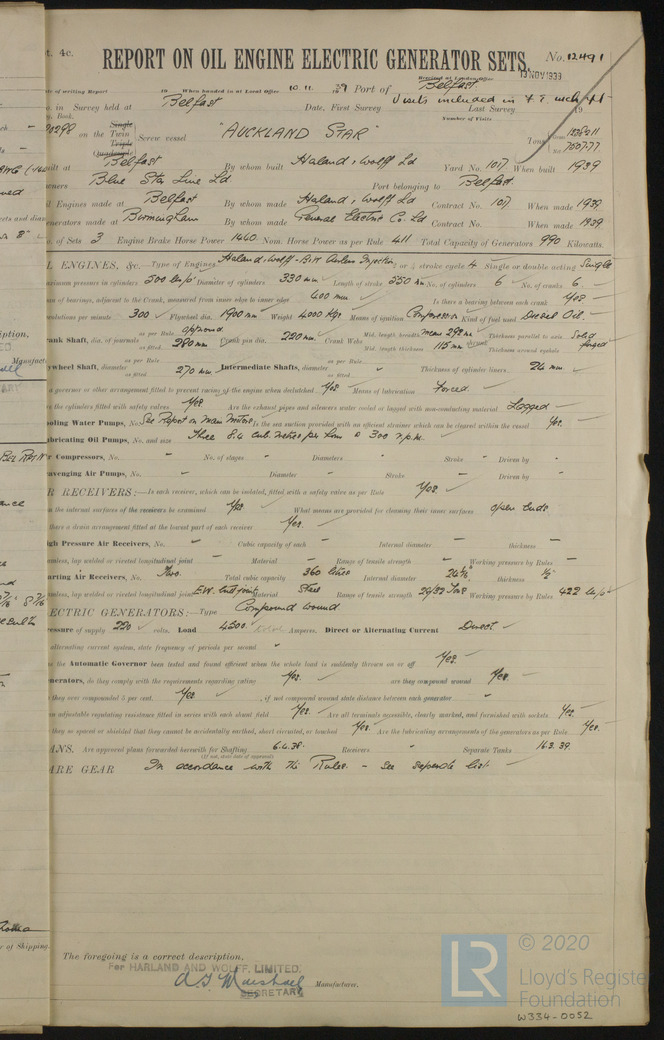 t. 4c.
REPORT ON OIL ENGINE ELECTRIC GENERATOR SETS.
No. 12491
Received at London Office
13 NOV 1939
te of writing Report 19 When handed in at Local Office 10.11. 1939 Port of Belfast
in Survey held at Belfast Date, First Survey Visits included in Last Survey 19
Number of Visits
90298 on the Single Twin Triple Quadruple Screw vessel "AUCKLAND STAR" Tons
Belfast By whom built Harland & Wolff Ld Yard No. 1017 When built 1939
Blue Star Line Ld Port belonging to Belfast
Engines made at Belfast By whom made Harland & Wolff Ld Contract No. 1017 When made 1939
enerators made at Birmingham By whom made General Electric Co. Ld Contract No. When made 1939
of Sets 3 Engine Brake Horse Power 1440 Nom. Horse Power as per Rule 411 Total Capacity of Generators 990 Kilowatts.
L ENGINES, &c. Type of Engines Harland-Wolff - B&W Airless Injection or 4 stroke cycle 4 Single or double acting Single
aximum pressure in cylinders 500 lbs/□" Diameter of cylinders 330 mm Length of stroke 550 No. of cylinders 6 No. of cranks 6
of bearings, adjacent to the Crank, measured from inner edge to inner edge 400 mm Is there a bearing between each crank Yes
evolutions per minute 300 Flywheel dia. 1900 mm Weight 4000 Kgs Means of ignition Compression Kind of fuel used Diesel Oil.
rank Shaft, dia. of journals as per Rule approved as fitted 280 mm Crank pin dia. 220 mm Crank Webs Mid. length breadth Mid. length thickness 115 mm Thickness parallel to axis Solid forged Thickness around eyehole
ywheel Shaft, diameter as per Rule as fitted 270 mm Intermediate Shafts, diameter as per Rule as fitted Thickness of cylinder liners 24 mm
a governor or other arrangement fitted to prevent racing of the engine when declutched Yes Means of lubrication Forced
re the cylinders fitted with safety valves Yes Are the exhaust pipes and silencers water cooled or lagged with non-conducting material Lagged
ooling Water Pumps, No. See Report on Main Motors Is the sea suction provided with an efficient strainer which can be cleared within the vessel Yes.
ubricating Oil Pumps, No. and size Three 8.4 cub. metres per hour @ 300 r.p.m.
r Compressors, No. - No. of stages - Diameters - Stroke - Driven by -
avenging Air Pumps, No. - Diameter - Stroke - Driven by -
R RECEIVERS:—Is each receiver, which can be isolated, fitted with a safety valve as per Rule Yes
n the internal surfaces of the receivers be examined Yes What means are provided for cleaning their inner surfaces open ends
there a drain arrangement fitted at the lowest part of each receiver Yes.
igh Pressure Air Receivers, No. - Cubic capacity of each - Internal diameter - thickness -
eamless, lap welded or riveted longitudinal joint - Material - Range of tensile strength - Working pressure by Rules -
arting Air Receivers, No. Two. Total cubic capacity 360 litres Internal diameter thickness 1/2
eamless, lap welded or riveted longitudinal joint E.W. butt joints Material Steel Range of tensile strength 29/32 Tons Working pressure by Rules 422
ECTRIC GENERATORS:—Type Compound wound
ressure of supply 220 volts. Load 4500 Amperes. Direct or Alternating Current Direct
alternating current system, state frequency of periods per second
s the Automatic Governor been tested and found efficient when the whole load is suddenly thrown on or off Yes.
enerators, do they comply with the requirements regarding rating Yes are they compound wound Yes.
they over compounded 5 per cent. Yes , if not compound wound state distance between each generator
an adjustable regulating resistance fitted in series with each shunt field Yes Are all terminals accessible, clearly marked, and furnished with sockets Yes.
they so spaced or shielded that they cannot be accidentally earthed, short circuited, or touched Yes Are the lubricating arrangements of the generators as per Rule Yes.
ANS. Are approved plans forwarded herewith for Shafting 6.4.38. Receivers Separate Tanks 16.3.39.
(If not, state date of approval)
ARE GEAR In accordance with the Rules. - see separate list
The foregoing is a correct description,
For HARLAND AND WOLFF, LIMITED.
SECRETARY Manufacturer.
LR © 2020
Lloyd's Register
Foundation
W334-0052